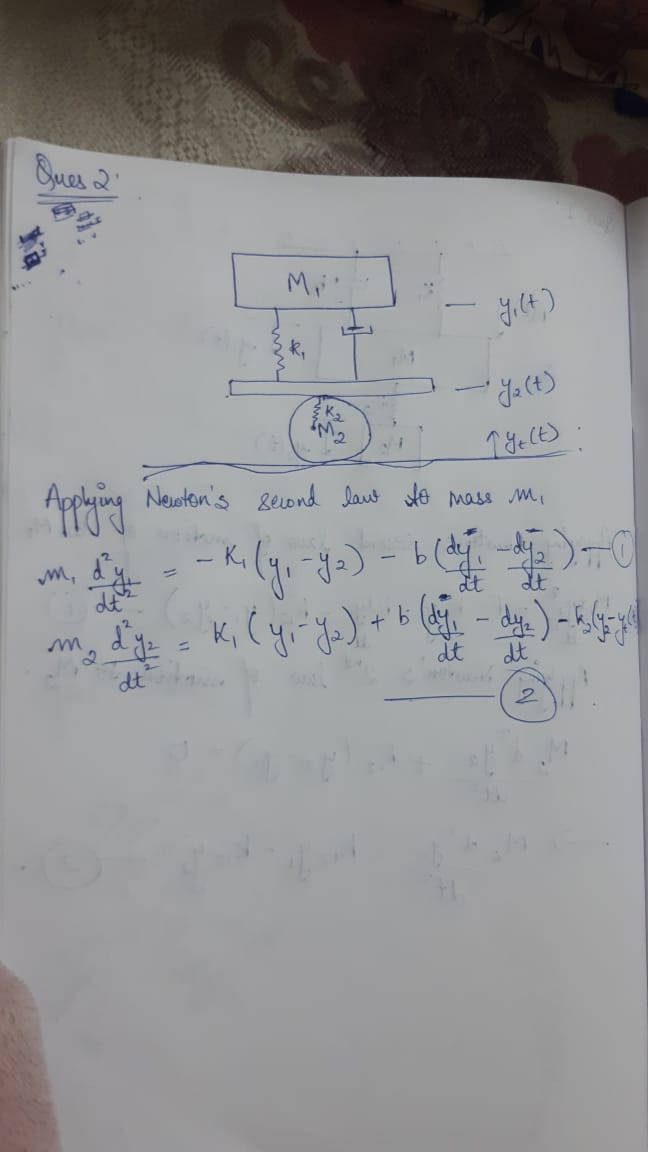 Ques 2
M₁
y₁(t)
K₁
y₂(t)
K₂
M₂
↑ yₜ(t)
Applying Newton's second law to mass m₁
m₁ d²y₁/dt² = -K₁(y₁-y₂) - b(dy₁/dt - dy₂/dt) — ①
m₂ d²y₂/dt² = K₁(y₁-y₂) + b(dy₁/dt - dy₂/dt) - K₂(y₂-yₜ(t)
②